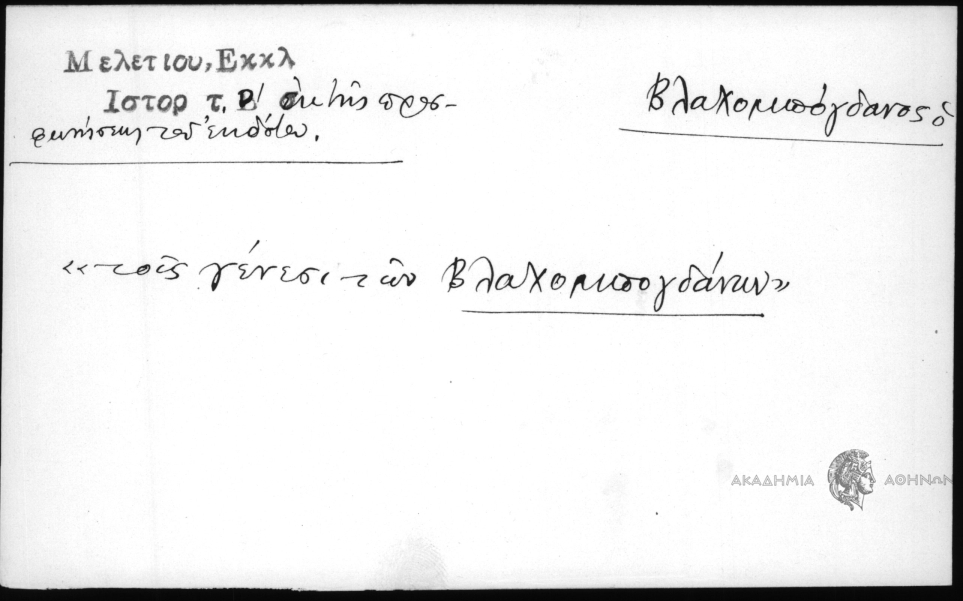 Μελετιου, Εκκλ
Ιστορ τ. Β' ἐκ τῆς προσ-
φωνήσεως τοῦ ἐκδότου.
Βλαχομπόγδανος ὁ
«τοῖς γένεσι τῶν Βλαχομπογδάνων»
ΑΚΑΔΗΜΙΑ ΑΘΗΝΩΝ